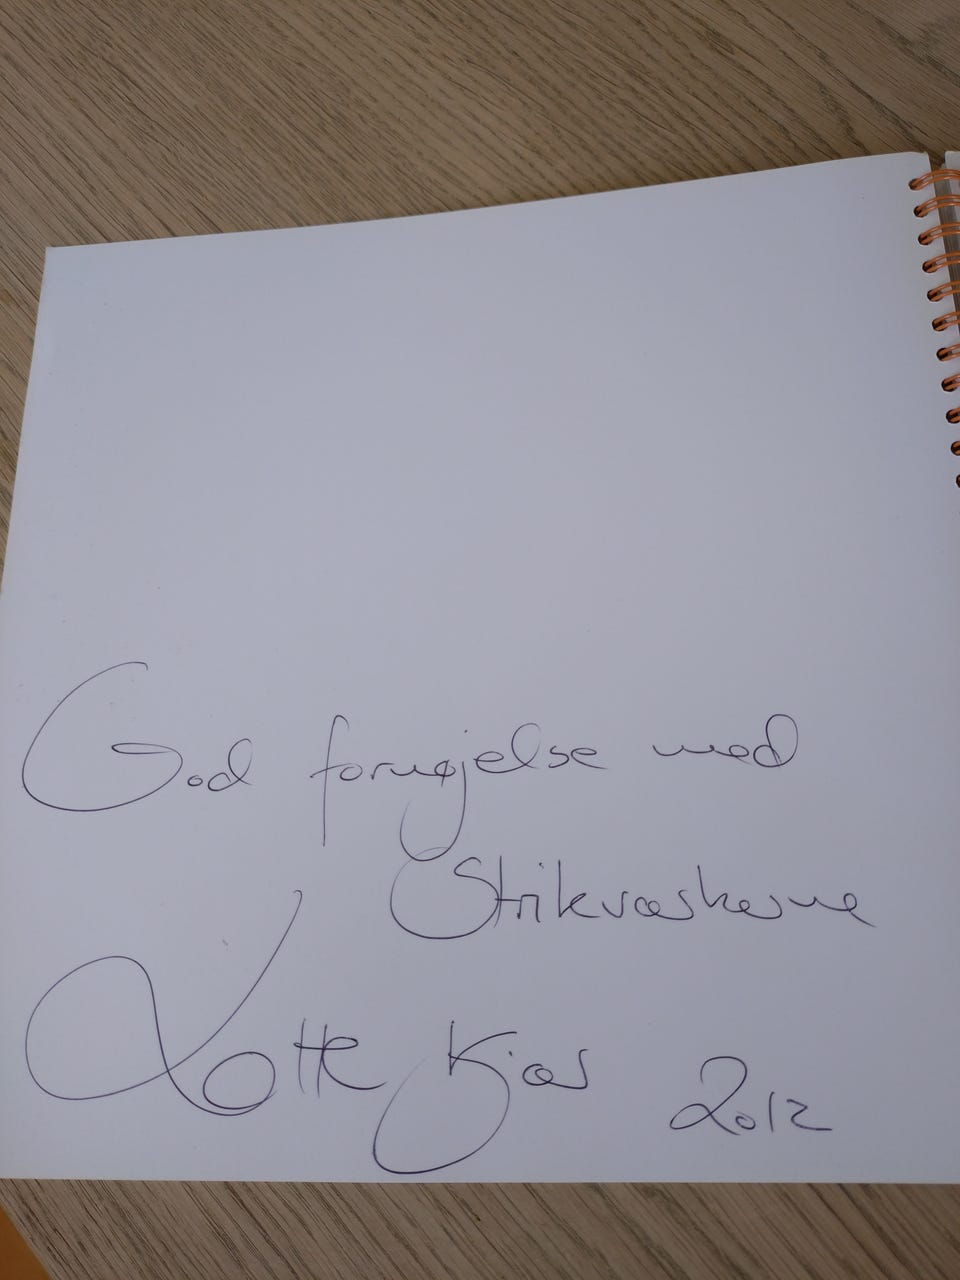 God fornøjelse med
Strikvæskerne
Lotte Kjær 2012